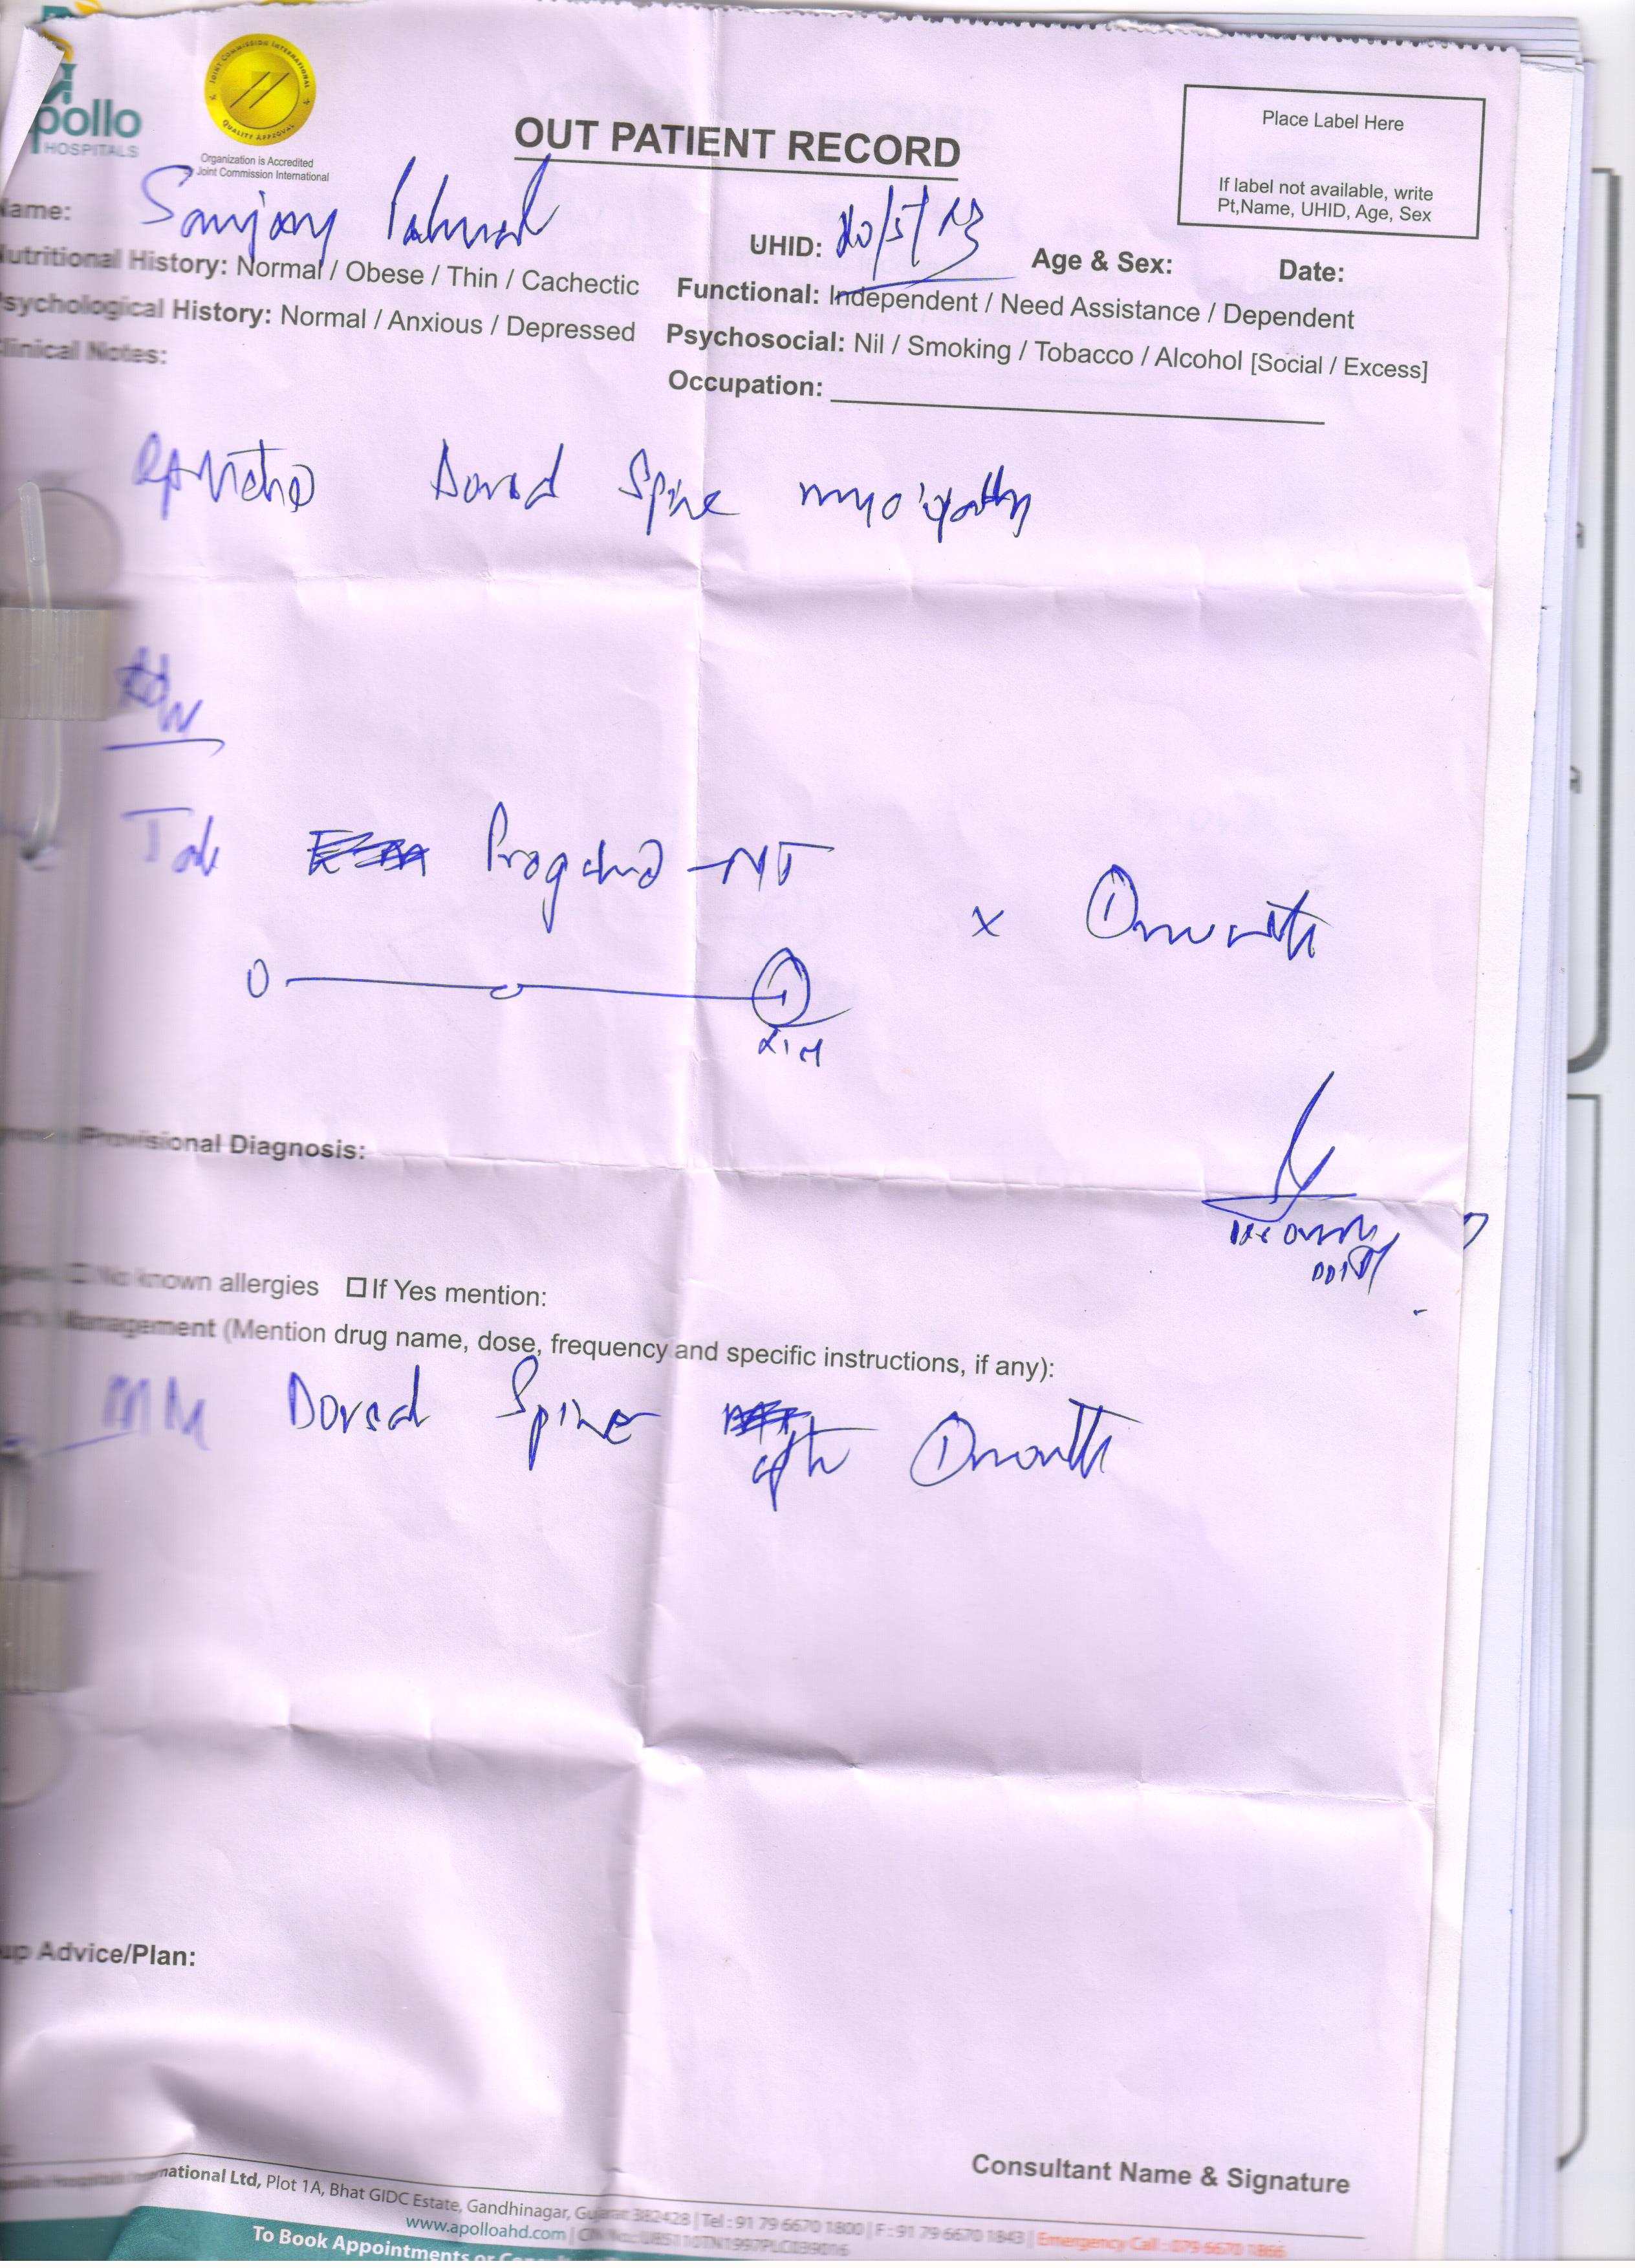 pollo
HOSPITALS
JOINT COMMISSION INTERNATIONAL
QUALITY APPROVAL
Organization is Accredited
Joint Commission International
OUT PATIENT RECORD
Place Label Here
If label not available, write
Pt,Name, UHID, Age, Sex
Name: Sanjay
UHID: 20/5/13 Age & Sex: Date:
Nutritional History: Normal / Obese / Thin / Cachectic
Functional: Independent / Need Assistance / Dependent
Psychological History: Normal / Anxious / Depressed
Psychosocial: Nil / Smoking / Tobacco / Alcohol [Social / Excess]
Clinical Notes:
Occupation:
Dorsal Spine
Adv
Tab -NT x 1 month
0 0 1
Provisional Diagnosis:
No known allergies If Yes mention:
Management (Mention drug name, dose, frequency and specific instructions, if any):
Dorsal Spine after 1 month
up Advice/Plan:
Consultant Name & Signature
national Ltd, Plot 1A, Bhat GIDC Estate, Gandhinagar, Gujarat 382428 | Tel : 91 79 6670 1800 | F : 91 79 6670 1843 | Emergency Call : 079 6670 1866
www.apolloahd.com | CIN No.: U85110TN1997PLC039016
To Book Appointments or